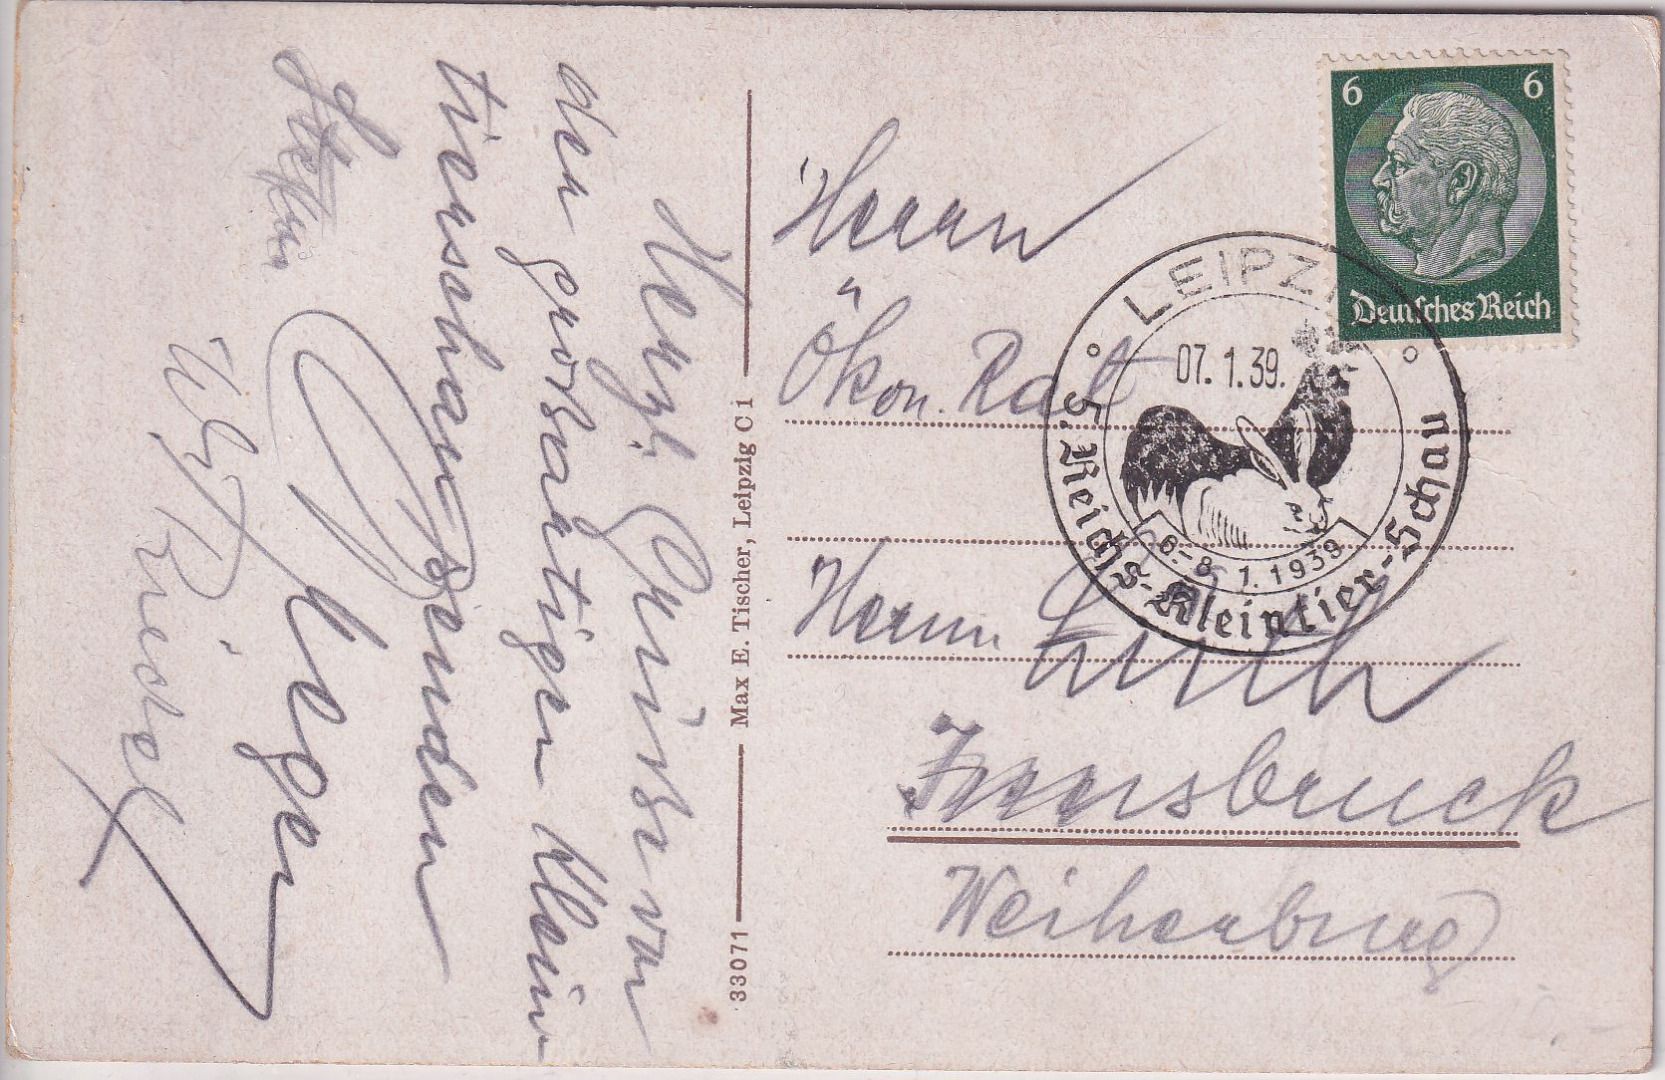 Herzl. Grüsse von
der großartigen Klein
tierschau senden
Jeger
Riedel
33071 Max E. Tischer, Leipzig C 1
Herrn
Ökon. Rat
Herrn
Innsbruck
Weiherburg
6 6
Deutsches Reich
LEIPZIG
07.1.39.
6-8.1.1939
5. Reichs-Kleintier-Schau